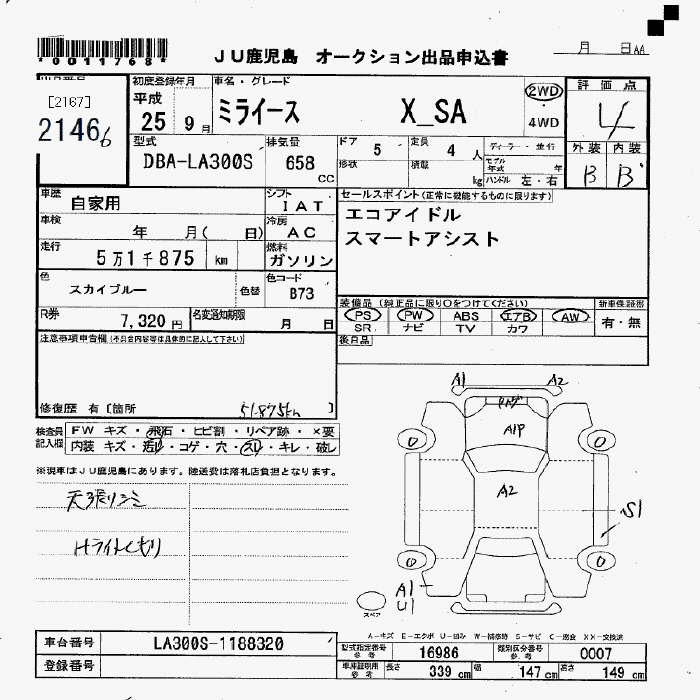 *0011768*
JU鹿児島 オークション出品申込書
月 日AA
[2167]
21466
初度登録年月
平成
25 9月
車名・グレード
ミライース X_SA
2WD
4WD
評価点
4
外装 内装
B B
型式
DBA-LA300S
排気量
658 cc
ドア 5
形状
定員 4 人
積載 kg
ディーラー・並行
モデル年式 年
ハンドル 左・右
車歴
自家用
シフト
IAT
車検
年 月( 日)
冷房
AC
走行
5万1千875 km
燃料
ガソリン
色
スカイブルー
色替
色コード
B73
R券
7,320円
名変通知期限
月 日
セールスポイント(正常に機能するものに限ります)
エコアイドル
スマートアシスト
装備品(純正品に限り○をつけてください)
PS PW ABS エアB AW
SR ナビ TV カワ
新車保証書
有・無
後日品
注意事項申告欄(不具合内容等は具体的に記入して下さい)
修復歴 有[箇所
51,875km
検査員記入欄
FW キズ・飛石・ヒビ割・リペア跡・×要
内装 キズ・汚れ・コゲ・穴・スレ・キレ・破レ
※現車はJU鹿児島にあります。陸送費は落札店負担となります。
天張りシミ
Hライトくもり
A1 A2
A1P
A2
S1
A1
U1
スペア
A-キズ E-エクボ U-凹み W-補修跡 S-サビ C-腐食 XX-交換済
車台番号
LA300S-1188320
登録番号
型式指定番号 参考
16986
類別区分番号 参考
0007
車庫証明用 参考
長さ 339 cm
幅 147 cm
高さ 149 cm